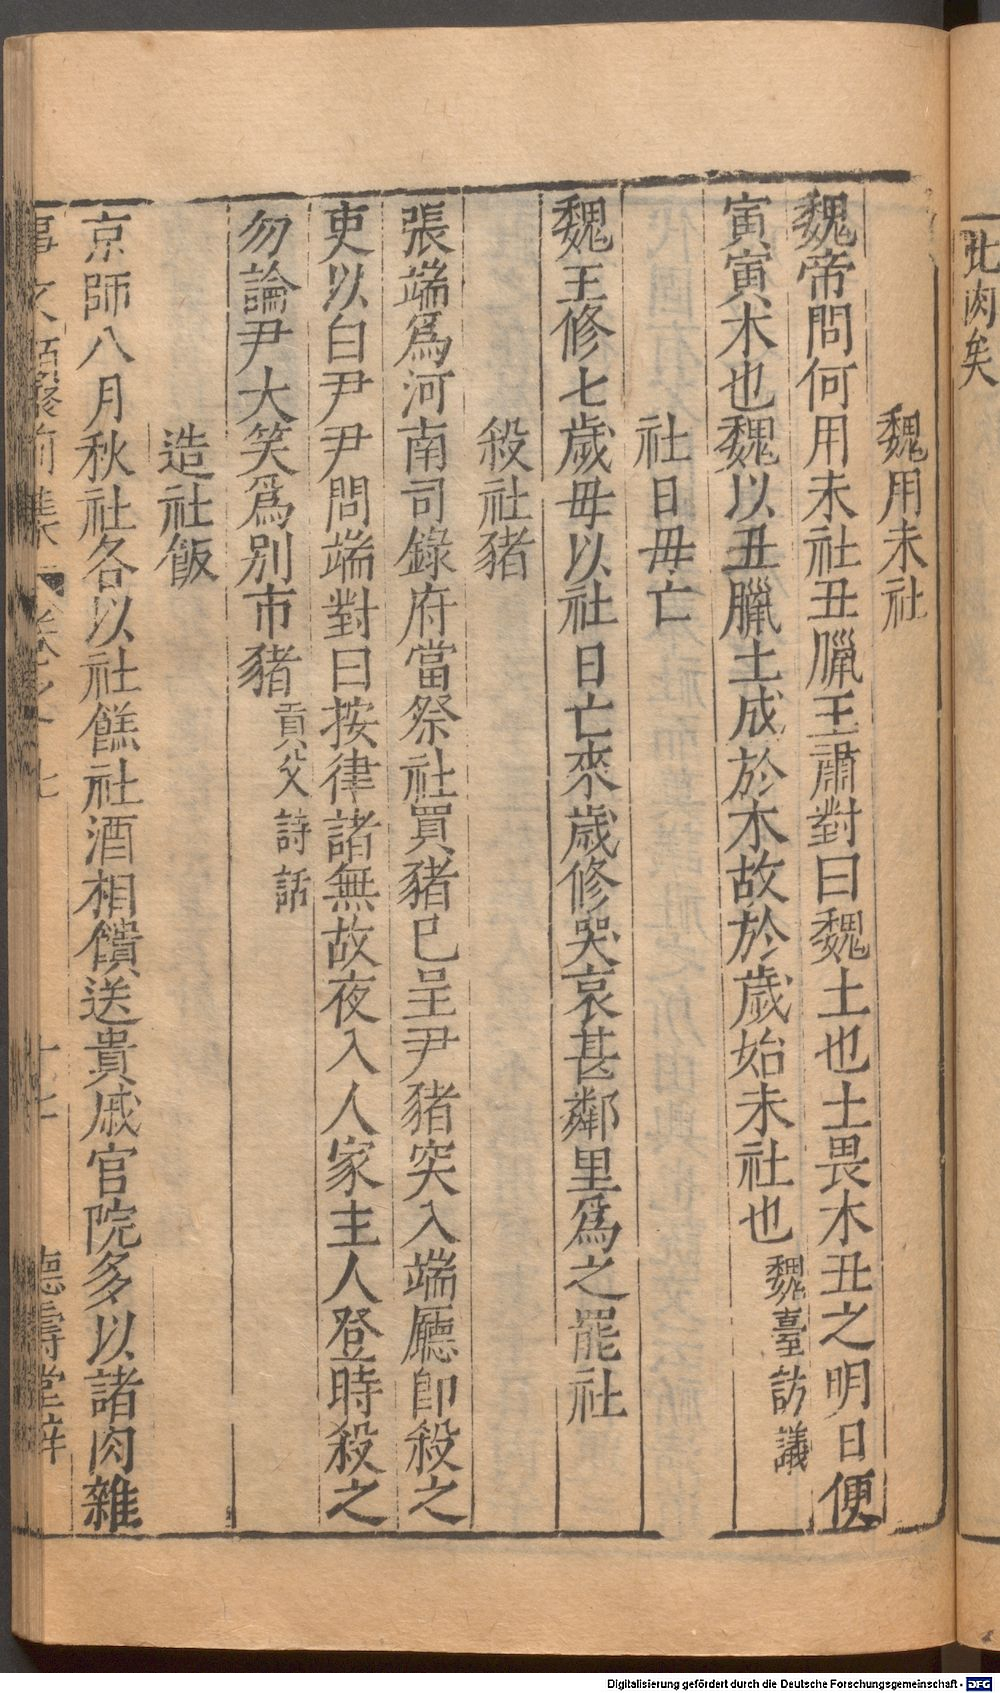 此肉矣
魏用未社
魏帝問何用未社丑臘王肅對曰魏土也土畏木丑之明日便
寅寅木也魏以丑臘土成於木故於歲始未社也魏臺訪議
社日毋亡
魏王修七歲毋以社日亡來歲修哭哀甚鄰里爲之罷社
殺社豬
張端爲河南司錄府當祭社買豬已呈尹豬突入端廳即殺之
吏以白尹尹問端對曰按律諸無故夜入人家主人登時殺之
勿論尹大笑爲別市豬貢父詩話
造社飯
京師八月秋社各以社餻社酒相饋送貴戚官院多以諸肉雜
事文類聚前集 卷之十七 十七 德壽堂梓
Digitalisierung gefördert durch die Deutsche Forschungsgemeinschaft - DFG